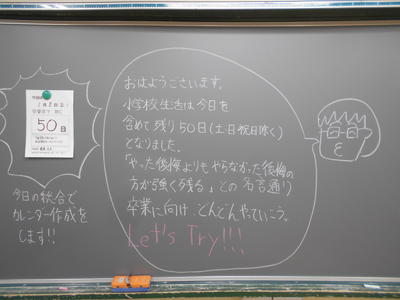 おはようございます。
小学校生活は今日を
含めて残り50日(土・日・祝日除く)
となりました。
「やった後悔よりもやらなかった後悔の
方が強く残る」との名言通り
卒業に向けどんどんやっていこう。
Let's Try!!!
50日
今日の総合で
カレンダー作成を
します!!